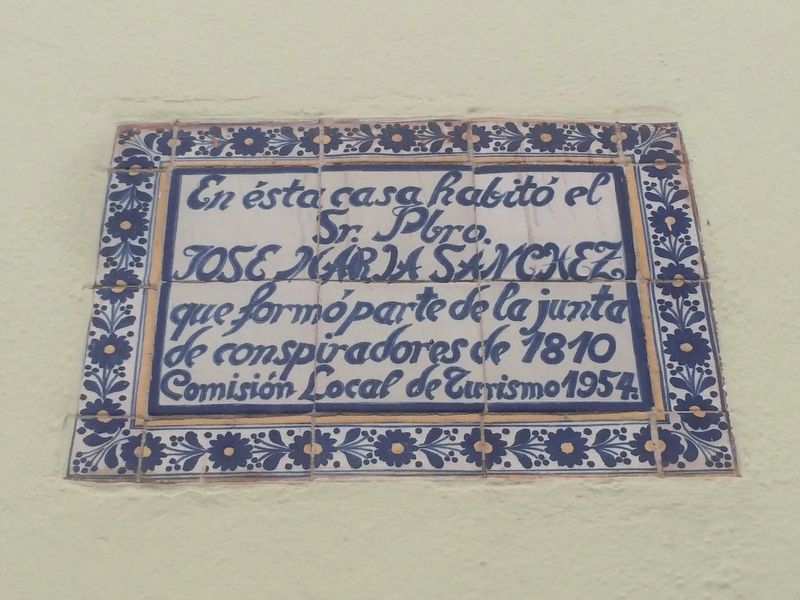 En ésta casa habitó el
Sr. Pbro.
JOSE MARIA SANCHEZ
que formó parte de la junta
de conspiradores de 1810
Comisión Local de Turismo 1954.